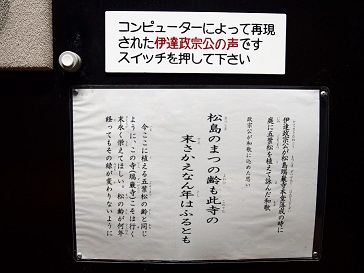 コンピューターによって再現
された伊達政宗公の声です
スイッチを押して下さい
伊達政宗公が松島瑞巌寺本堂落成の時に
庭に五葉松を植えて詠んだ和歌
政宗公が和歌に込めた思い
松島のまつの齢も此寺の
末さかえなん年はふるとも
今ここに植える五葉松の齢と同じ
ように、この寺(瑞巌寺)こそは行く
末永く栄えてほしい。松の齢が何年
経ってもその緑が変わりないように